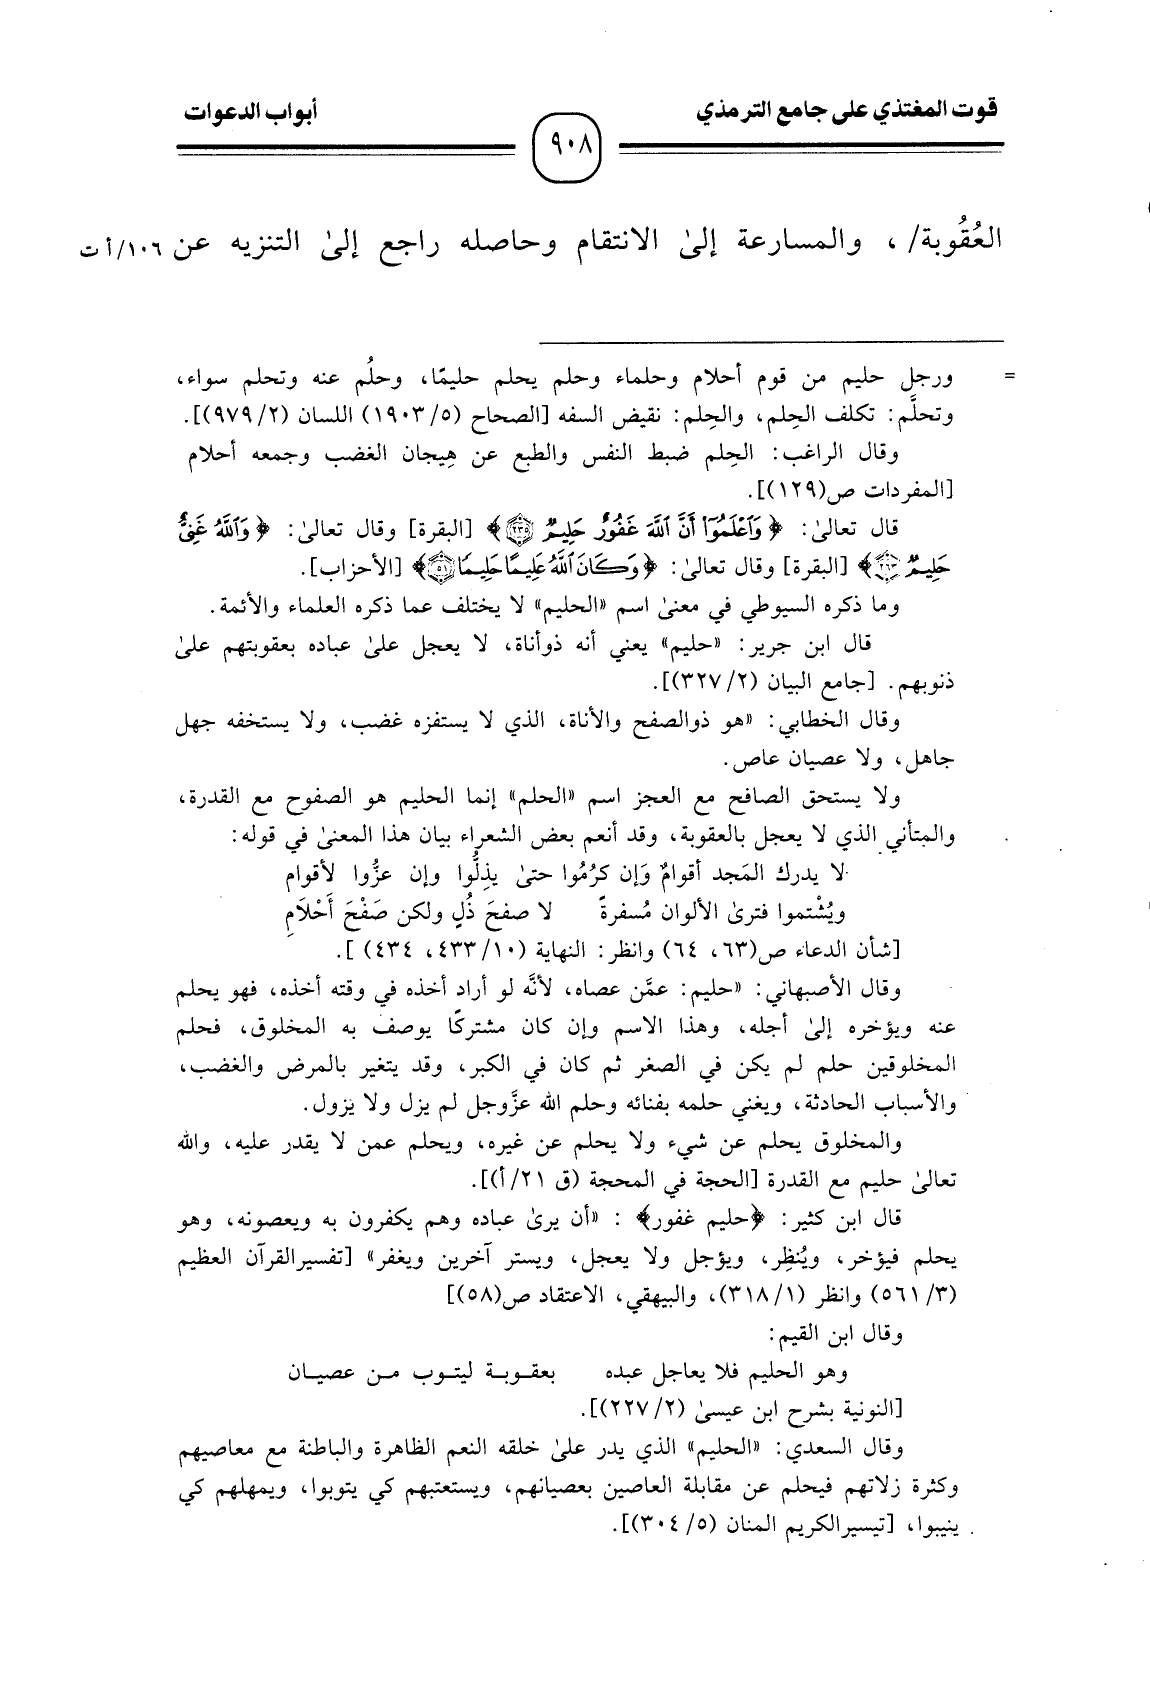 قوت المغتذي على جامع الترمذي
٩٠٨
أبواب الدعوات
العُقُوبة/ ، والمسارعة إلىٰ الانتقام وحاصله راجع إلىٰ التنزيه عن ١٠٦/أ ت
= ورجل حليم من قوم أحلام وحلماء وحلم يحلم حليمًا، وحلُم عنه وتحلم سواء،
وتحلَّم: تكلف الحِلم، والحِلم: نقيض السفه [الصحاح (١٩٠٣/٥) اللسان (٩٧٩/٢)].
وقال الراغب: الحِلم ضبط النفس والطبع عن هِيجان الغضب وجمعه أحلام
[المفردات ص(١٢٩)].
قال تعالىٰ: ﴿وَٱعۡلَمُوٓاْ أَنَّ ٱللَّهَ غَفُورٌ حَلِيمٌ ٢٣٥﴾ [البقرة] وقال تعالىٰ: ﴿وَٱللَّهُ غَنِيٌّ
حَلِيمٌ ٢٦٣﴾ [البقرة] وقال تعالىٰ: ﴿وَكَانَ ٱللَّهُ عَلِيمًا حَلِيمًا ٥١﴾ [الأحزاب].
وما ذكره السيوطي في معنىٰ اسم «الحليم» لا يختلف عما ذكره العلماء والأئمة.
قال ابن جرير: «حليم» يعني أنه ذوأناة، لا يعجل علىٰ عباده بعقوبتهم علىٰ
ذنوبهم. [جامع البيان (٣٢٧/٢)].
وقال الخطابي: «هو ذوالصفح والأناة، الذي لا يستفزه غضب، ولا يستخفه جهل
جاهل، ولا عصيان عاص.
ولا يستحق الصافح مع العجز اسم «الحلم» إنما الحليم هو الصفوح مع القدرة،
والمتأني الذي لا يعجل بالعقوبة، وقد أنعم بعض الشعراء بيان هذا المعنىٰ في قوله:
لا يدرك المَجد أقوامٌ وَإن كرُمُوا حتىٰ يذِلُّوا وإن عزُّوا لأقوام
ويُشْتموا فترىٰ الألوان مُسفرةً لا صفحَ ذُلٍ ولكن صَفْحَ أَحْلَامِ
[شأن الدعاء ص(٦٣، ٦٤) وانظر: النهاية (٤٣٣/١٠، ٤٣٤) ].
وقال الأصبهاني: «حليم: عمَّن عصاه، لأنَّه لو أراد أخذه في وقته أخذه، فهو يحلم
عنه ويؤخره إلىٰ أجله، وهذا الاسم وإن كان مشتركًا يوصف به المخلوق، فحلم
المخلوقين حلم لم يكن في الصغر ثم كان في الكبر، وقد يتغير بالمرض والغضب،
والأسباب الحادثة، ويغني حلمه بفنائه وحلم الله عزَّوجل لم يزل ولا يزول.
والمخلوق يحلم عن شيء ولا يحلم عن غيره، ويحلم عمن لا يقدر عليه، والله
تعالىٰ حليم مع القدرة [الحجة في المحجة (ق ٢١/أ)].
قال ابن كثير: ﴿حليم غفور﴾ : «أن يرىٰ عباده وهم يكفرون به ويعصونه، وهو
يحلم فيؤخر، ويُنظِر، ويؤجل ولا يعجل، ويستر آخرين ويغفر» [تفسيرالقرآن العظيم
(٥٦١/٣) وانظر (٣١٨/١)، والبيهقي، الاعتقاد ص(٥٨)]
وقال ابن القيم:
وهو الحليم فلا يعاجل عبده بعقوبة ليتوب من عصيان
[النونية بشرح ابن عيسىٰ (٢٢٧/٢)].
وقال السعدي: «الحليم» الذي يدر علىٰ خلقه النعم الظاهرة والباطنة مع معاصيهم
وكثرة زلاتهم فيحلم عن مقابلة العاصين بعصيانهم، ويستعتبهم كي يتوبوا، ويمهلهم كي
ينيبوا، [تيسيرالكريم المنان (٣٠٤/٥)].